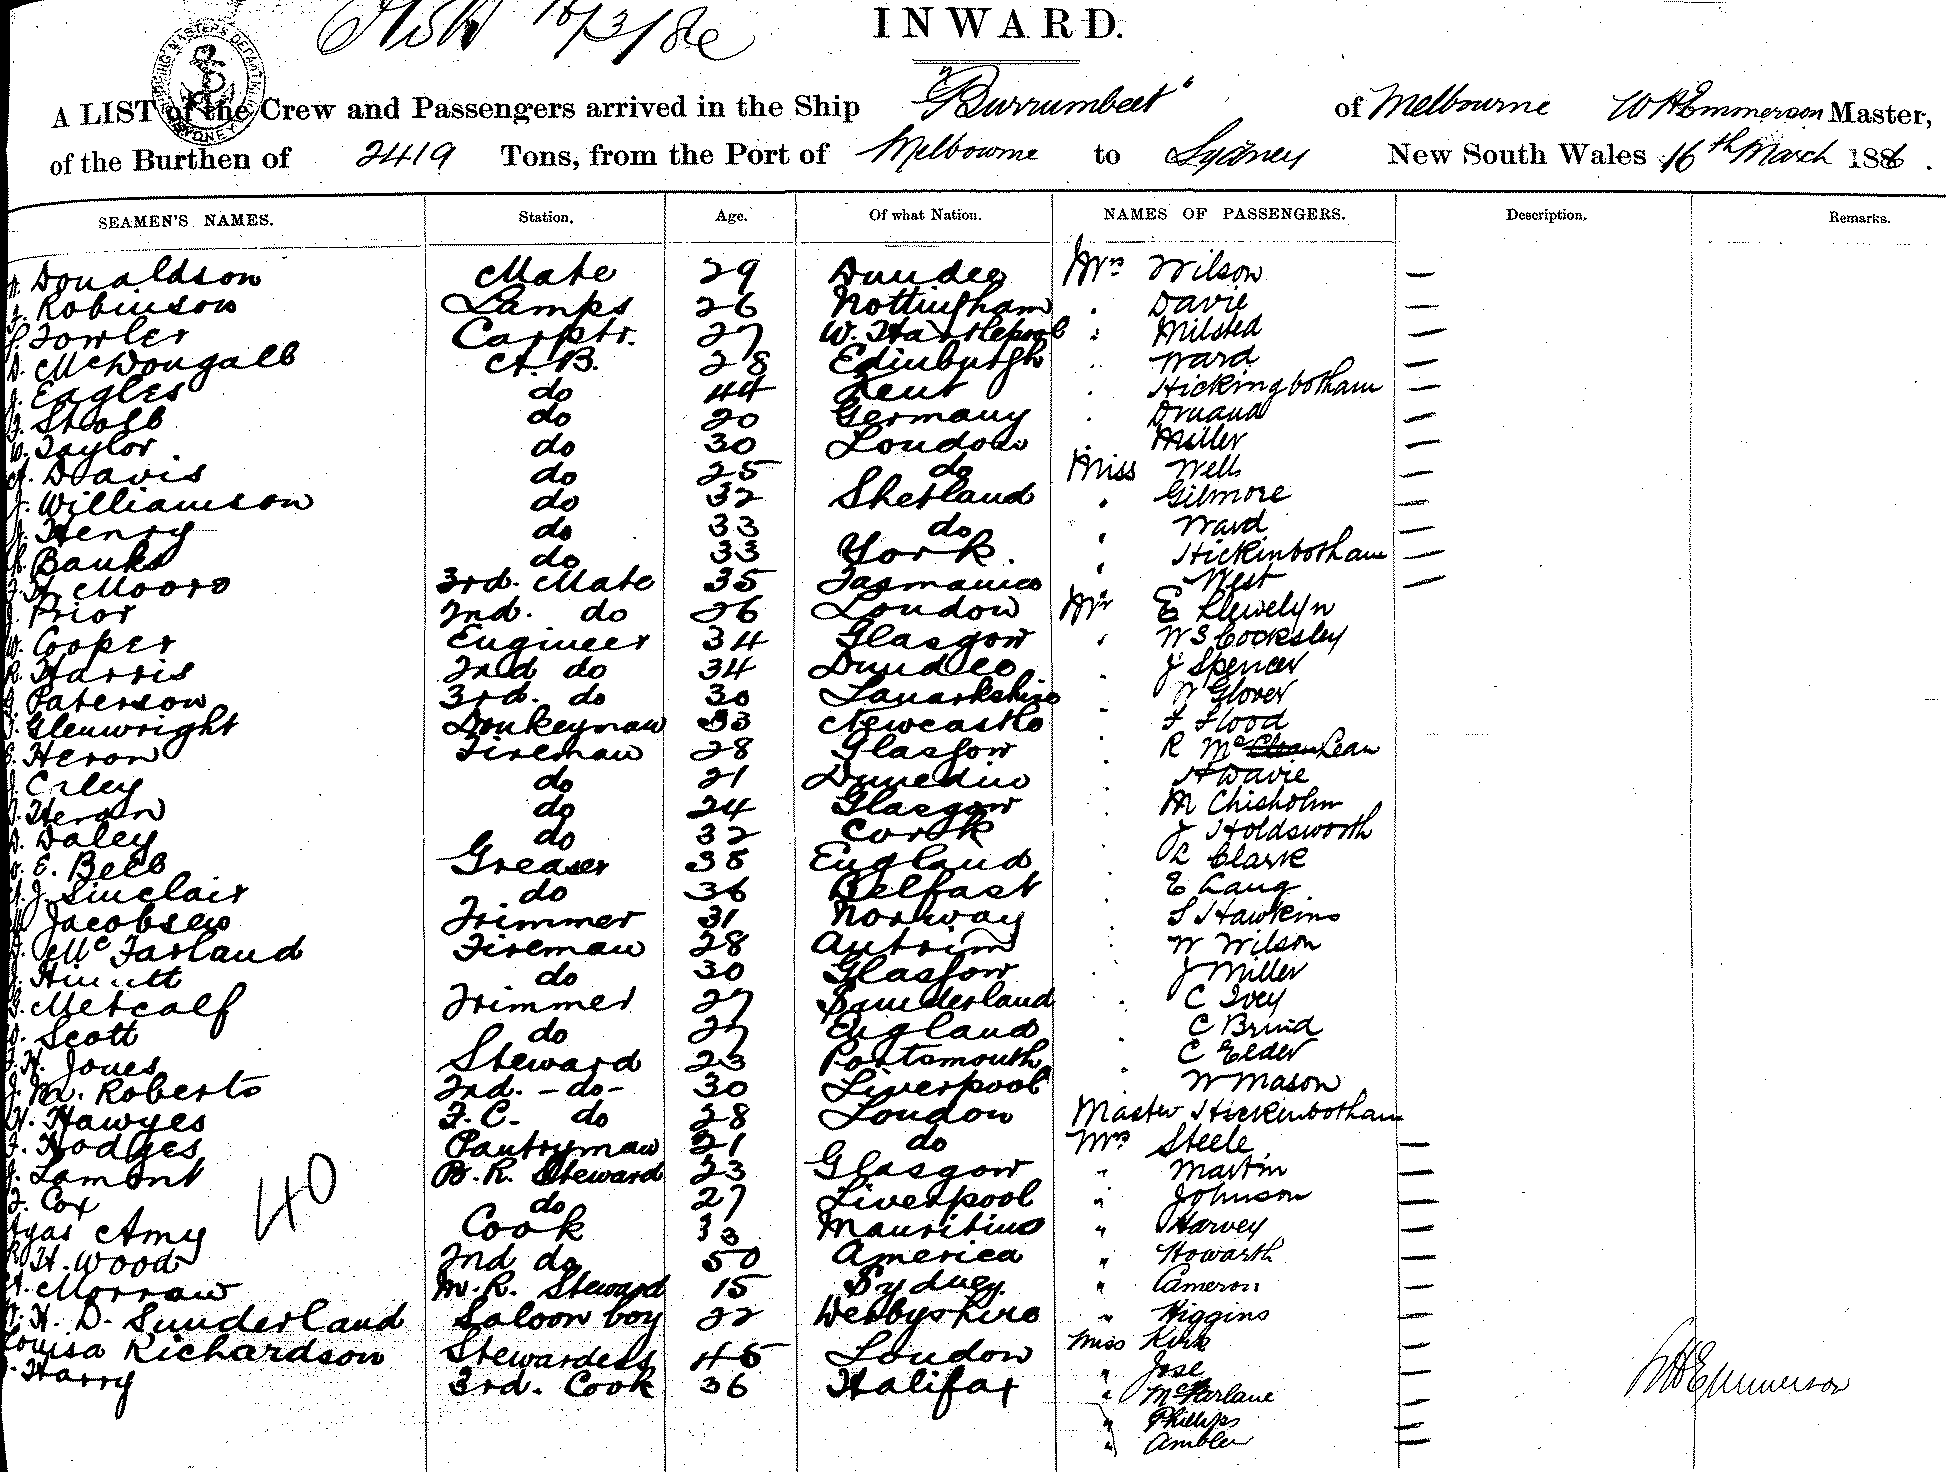 16/3/86
INWARD.
A LIST of the Crew and Passengers arrived in the Ship "Burrumbeet" of Melbourne W H Emmerson Master,
of the Burthen of 2419 Tons, from the Port of Melbourne to Sydney New South Wales 16th March 1886.
SEAMEN'S NAMES. Station. Age. Of what Nation. NAMES OF PASSENGERS. Description. Remarks.
Donaldson Mate 29 Dundee Mrs Wilson —
Robinson Lamps 26 Nottingham . Davie —
Fowler Carptr. 27 W. Hartlepool . Milsted —
D. McDougall A.B. 28 Edinburgh . Ward —
J. Eagles do 44 Kent . Hickingbotham —
Stoll do 20 Germany . —
Taylor do 30 London . Miller —
A. Davis do 25 do Miss Wells —
J. Williamson do 32 Shetland " Gilmore —
Henry do 33 do " Ward —
Banks do 33 York. " Hickinbotham —
H. Moore 3rd. Mate 35 Tasmania " West —
Prior 2nd. do 26 London Mr E Llewelyn
W. Cooper Engineer 34 Glasgow " W S Cooksley
R. Harris 2nd do 34 Dundee . J Spencer
Paterson 3rd. do 30 Lanarkshire . W Glover
Glenwright Donkeyman 33 Newcastle . F Flood
Heron Fireman 28 Glasgow . R McLean
Erley do 21 Dunedin . H Davie
Heron do 24 Glasgow . M Chisholm
D. Daley do 32 Cork . J Holdsworth
E. Bell Greaser 38 England . L Clark
J. Sinclair do 36 Belfast . E Lang
Jacobsen Trimmer 31 Norway . S Hawkins
J. McFarland Fireman 28 Antrim . W Wilson
do 30 Glasgow . J Miller
Metcalf Trimmer 27 Sunderland . C Ivey
J. Scott do 27 England . C Brind
H. Jones Steward 23 Portsmouth . C Elder
J. M. Roberts 2nd. -do- 30 Liverpool . W Mason
H. Hawyes F.C. do 28 London Master Hickinbotham
Hodges Pantryman 21 do Mrs Steele —
J. Lamont B.R. Steward 23 Glasgow " Martin —
Cox do 27 Liverpool " Johnson —
Amy Cook 33 Mauritius " Harvey —
H. Wood 2nd do 50 America " Howarth —
A. Morrow M.R. Steward 15 Sydney. " Cameron —
H. D. Sunderland Saloon boy 22 Derbyshire " Higgins —
Louisa Richardson Stewardess 45 London Miss Kirk —
Harry 3rd. Cook 36 Halifax " Jose —
" McFarlane —
" Phillips —
" Ambler —
40
W H Emmerson